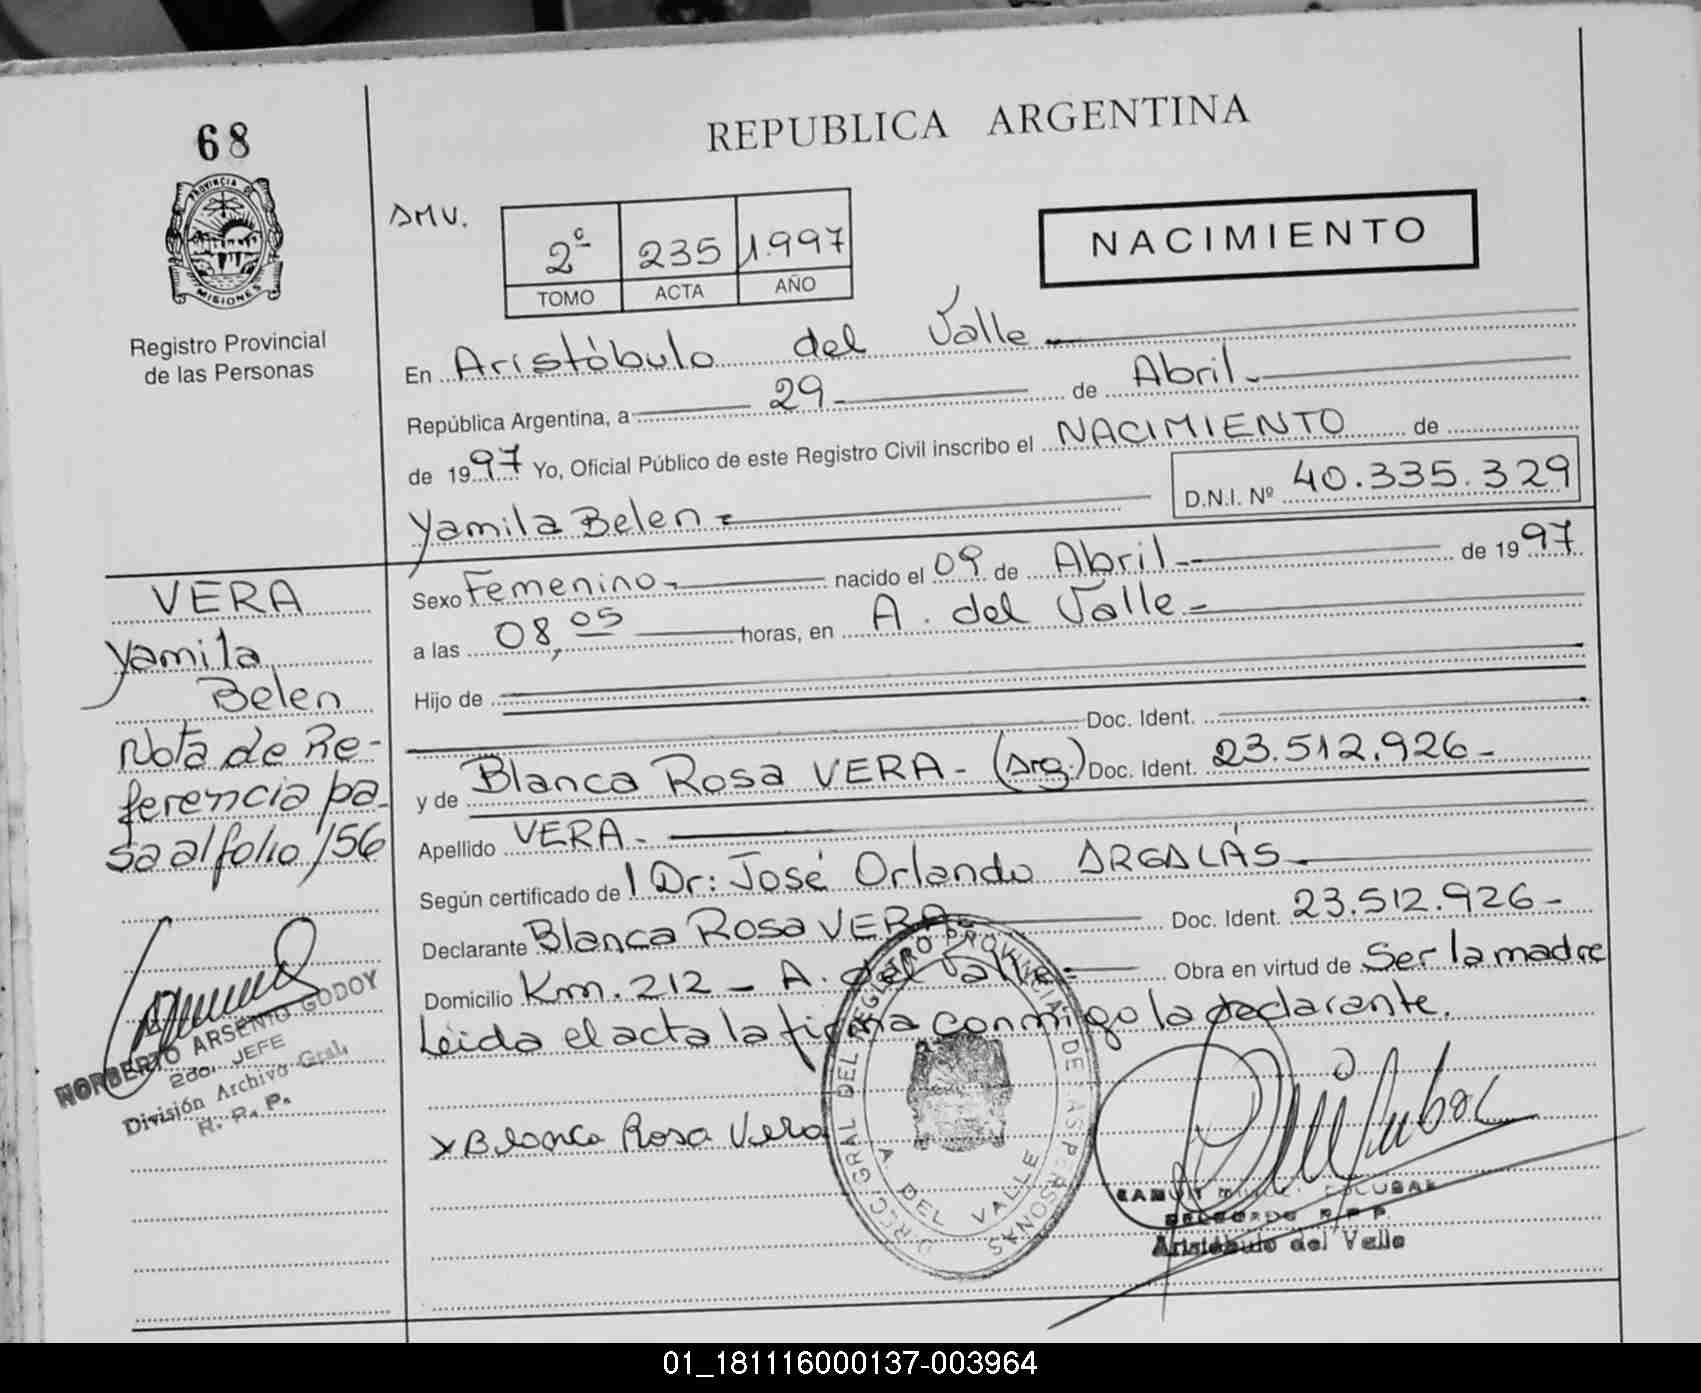 68
PROVINCIA DE
MISIONES
Registro Provincial
de las Personas
REPUBLICA ARGENTINA
DMV.
2º 235 1.997
TOMO ACTA AÑO
NACIMIENTO
En Aristóbulo del Valle
República Argentina, a 29 de Abril
de 1997 Yo, Oficial Público de este Registro Civil inscribo el NACIMIENTO de
Yamila Belen D.N.I. Nº 40.335.329
Sexo Femenino nacido el 09 de Abril de 1997
a las 08,05 horas, en A. del Valle
Hijo de
Doc. Ident.
y de Blanca Rosa VERA - (Arg.) Doc. Ident. 23.512.926-
Apellido VERA-
Según certificado del Dr: José Orlando ARGALÁS
Declarante Blanca Rosa VERA Doc. Ident. 23.512.926-
Domicilio Km. 212 - A. del Valle Obra en virtud de Ser la madre
Leida el acta la firma conmigo la declarante.
x Blanca Rosa Vera
VERA
Yamila
Belen
Nota de Re-
ferencia pa-
sa al folio 156
NORBERTO ARSENIO GODOY
2do. JEFE
División Archivo Gral.
R. P. P.
DIRECC GRAL DEL REGISTRO PROVINCIAL DE LAS PERSONAS
A DEL VALLE
R.P.P.
Aristóbulo del Valle
01_181116000137-003964